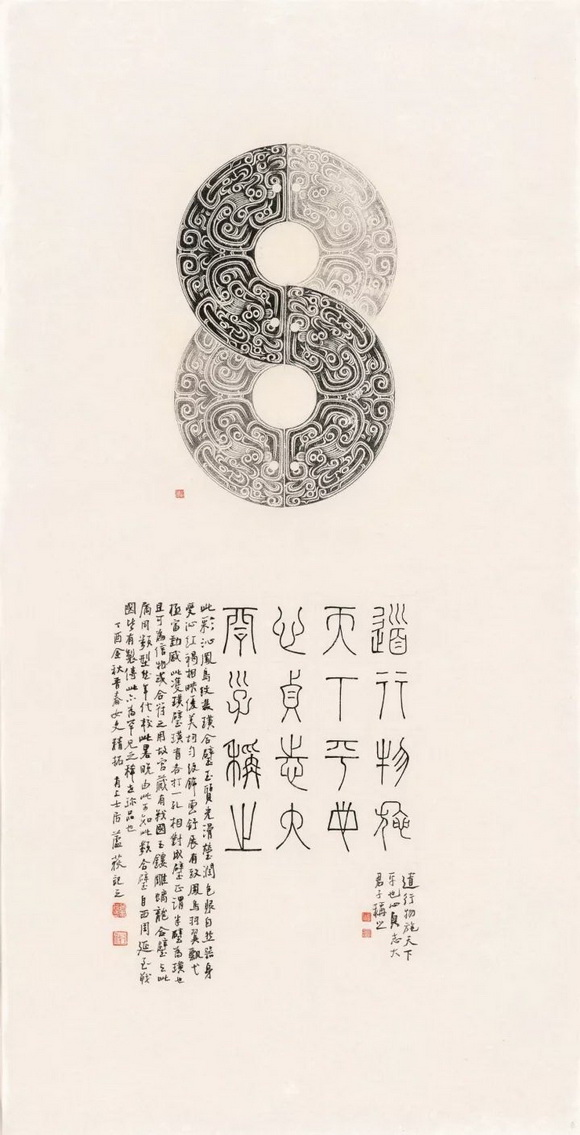 道行物施
天下平也
心貞志大
君子稱之
道行物施天下
平也心貞志大
君子稱之
此彩沁鳳鳥紋雙璜合璧玉質光滑瑩潤包漿自然器身
受沁紅褐相映優美均勻紋飾雲舒展有致鳳鳥羽翼飄弋
極富動感此雙璜璧璜首各打一孔相對成璧正謂半璧為璜也
且可為信物或合符之用故宮藏有戰國玉鏤雕螭龍合璧與此
屬同類型然年代較此略晚由此可知此類合璧自西周延至戰
國皆有製傳此亦為罕見之稀世珍品也
丁酉金秋晉齋女史精拓 有上士居蘆記之